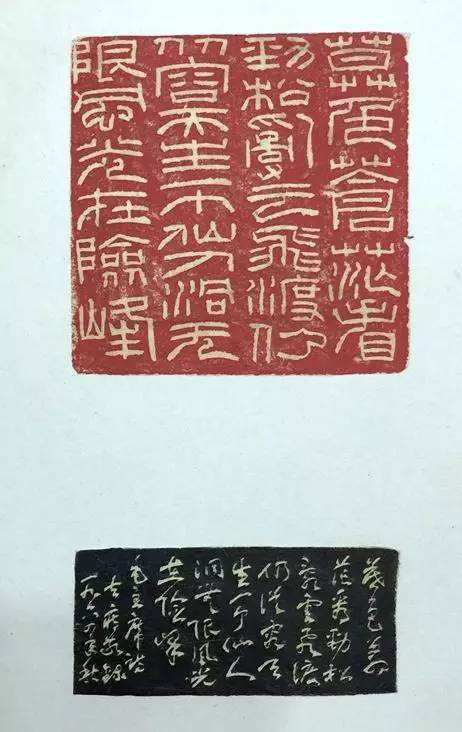 暮色蒼茫看
勁松亂雲飛渡仍
从容天生一个仙人洞无
限風光在險峰
暮色蒼
茫看勁松
亂雲飛渡
仍從容天
生一个仙人
洞无限風光
在險峰
毛主席詩
去疾敬録
一九六年秋